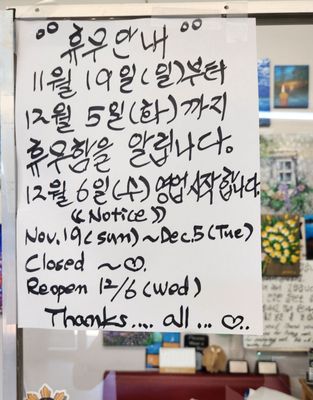 "휴무안내"
11월 19일(일)부터
12월 5일(화)까지
휴무함을 알립니다.
12월 6일(수) 영업시작합니다.
《Notice》
Nov.19(sun)~Dec.5(Tue)
Closed ~♡.
Reopen 12/6(wed)
Thanks.... all... ♡..